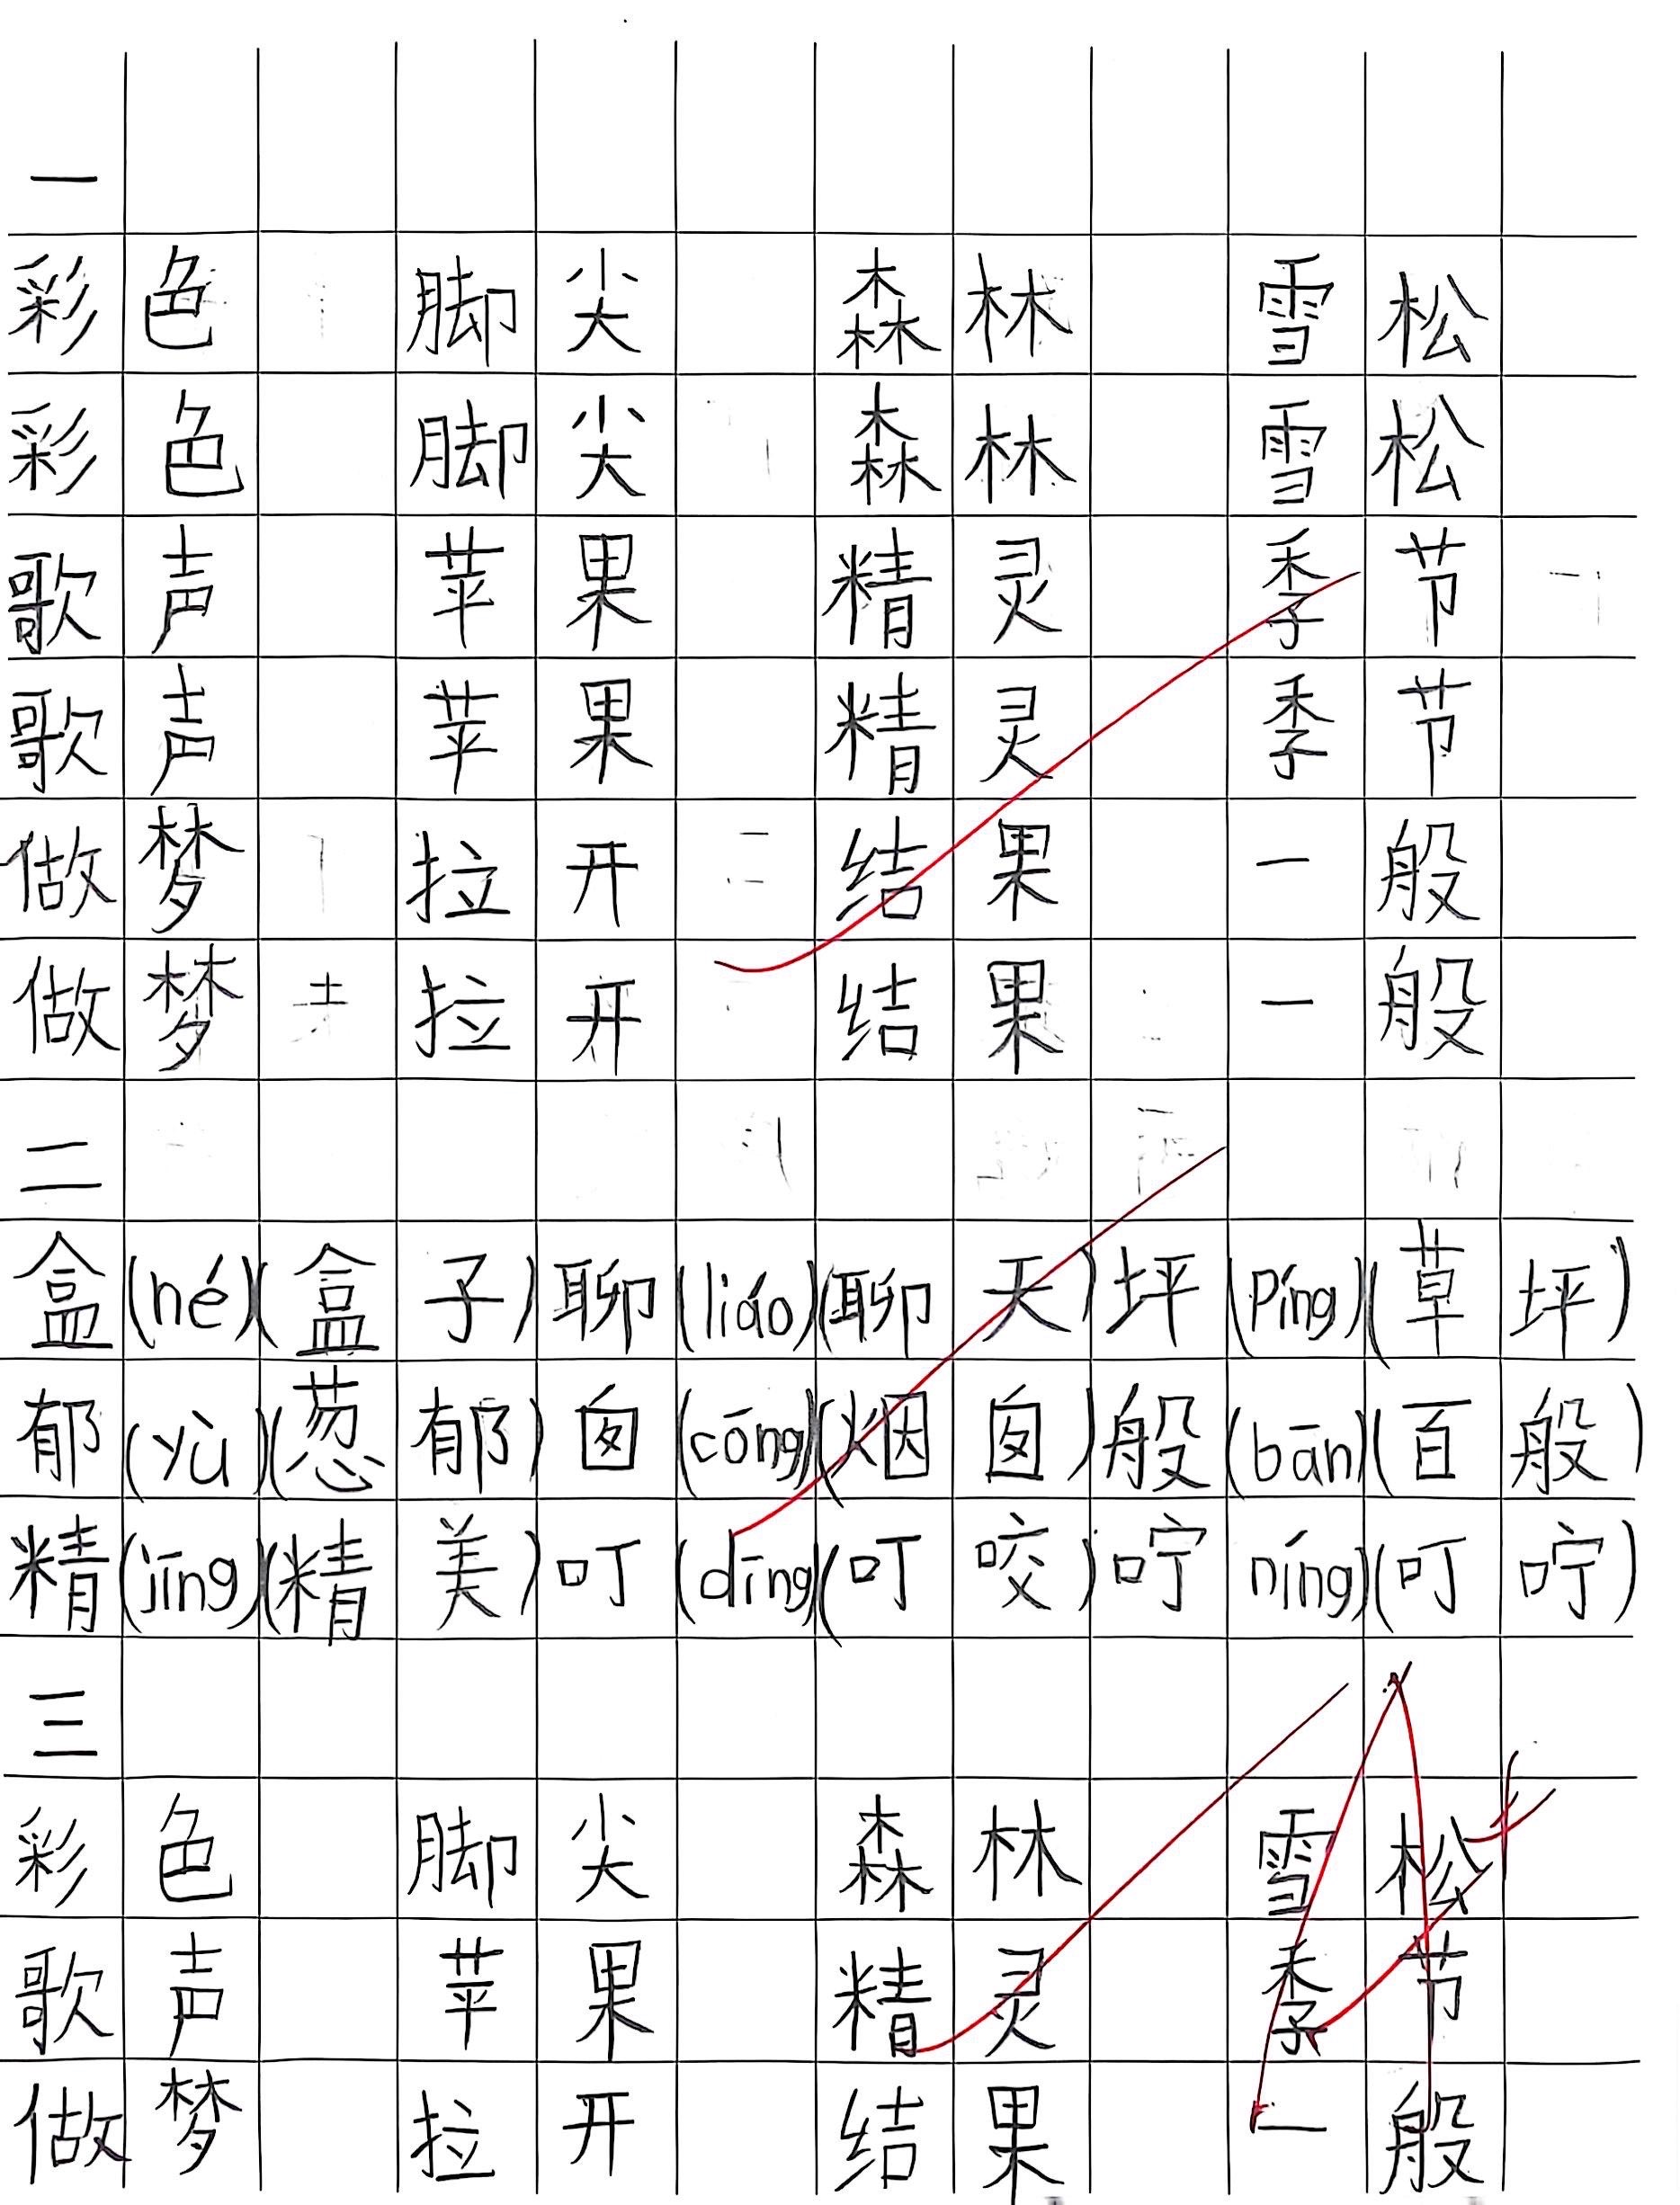 一
彩色 脚尖 森林 雪松
彩色 脚尖 森林 雪松
歌声 苹果 精灵 季节
歌声 苹果 精灵 季节
做梦 拉开 结果 一般
做梦 拉开 结果 一般
二
盒(hé)(盒子)聊(liáo)(聊天)坪(píng)(草坪)
郁(yù)(葱郁)囱(cōng)(烟囱)般(bān)(百般)
精(jīng)(精美)叮(dīng)(叮咬)咛níng)(叮咛)
三
彩色 脚尖 森林 雪松
歌声 苹果 精灵 季节
做梦 拉开 结果 一般